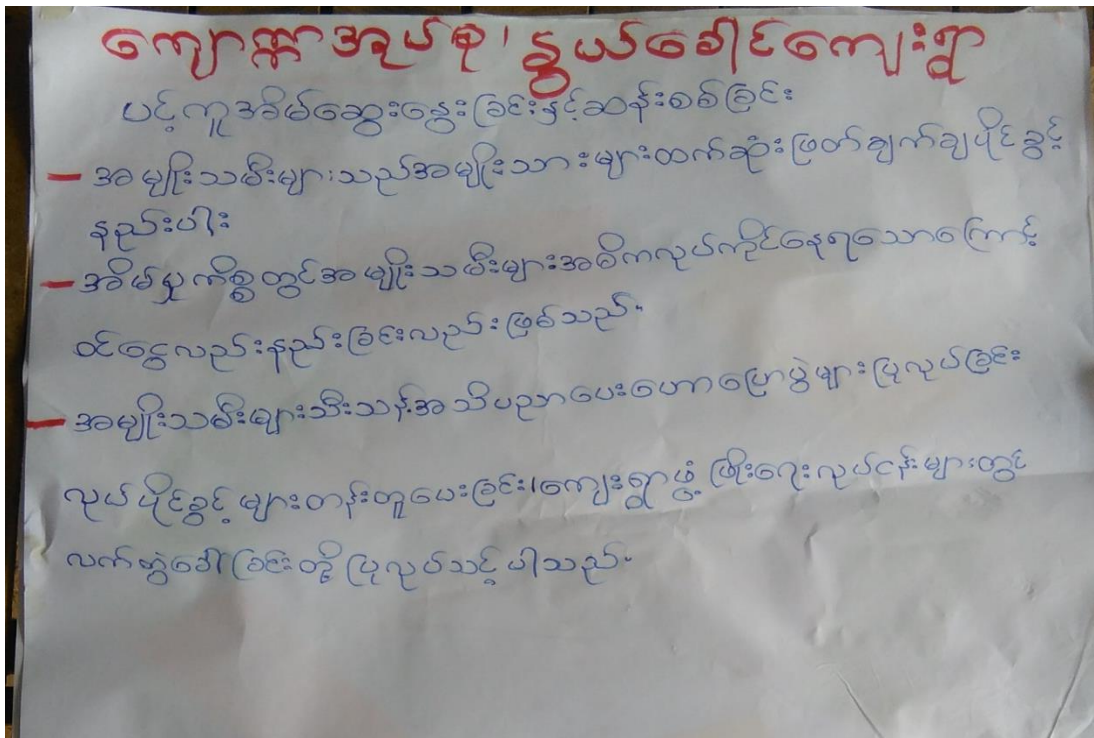 ကျောက္ကာအုပ်စု၊ နွယ်ခေါင်ကျေးရွာ
ပင့်ကူအိမ်ဆွေးနွေးခြင်းနှင့်ဆန်းစစ်ခြင်း
– အမျိုးသမီးများသည်အမျိုးသားများထက်ဆုံးဖြတ်ချက်ချပိုင်ခွင့်
နည်းပါး
– အိမ်မှုကိစ္စတွင်အမျိုးသမီးများအဓိကလုပ်ကိုင်နေရသောကြောင့်
ဝင်ငွေလည်းနည်းခြင်းလည်းဖြစ်သည်။
– အမျိုးသမီးများသီးသန့်အသိပညာပေးဟောပြောပွဲများပြုလုပ်ခြင်း
လုပ်ပိုင်ခွင့်များတန်းတူပေးခြင်း၊ကျေးရွာဖွံ့ဖြိုးရေးလုပ်ငန်းများတွင်
လက်တွဲခေါ်ခြင်းတို့ပြုလုပ်သင့်ပါသည်။